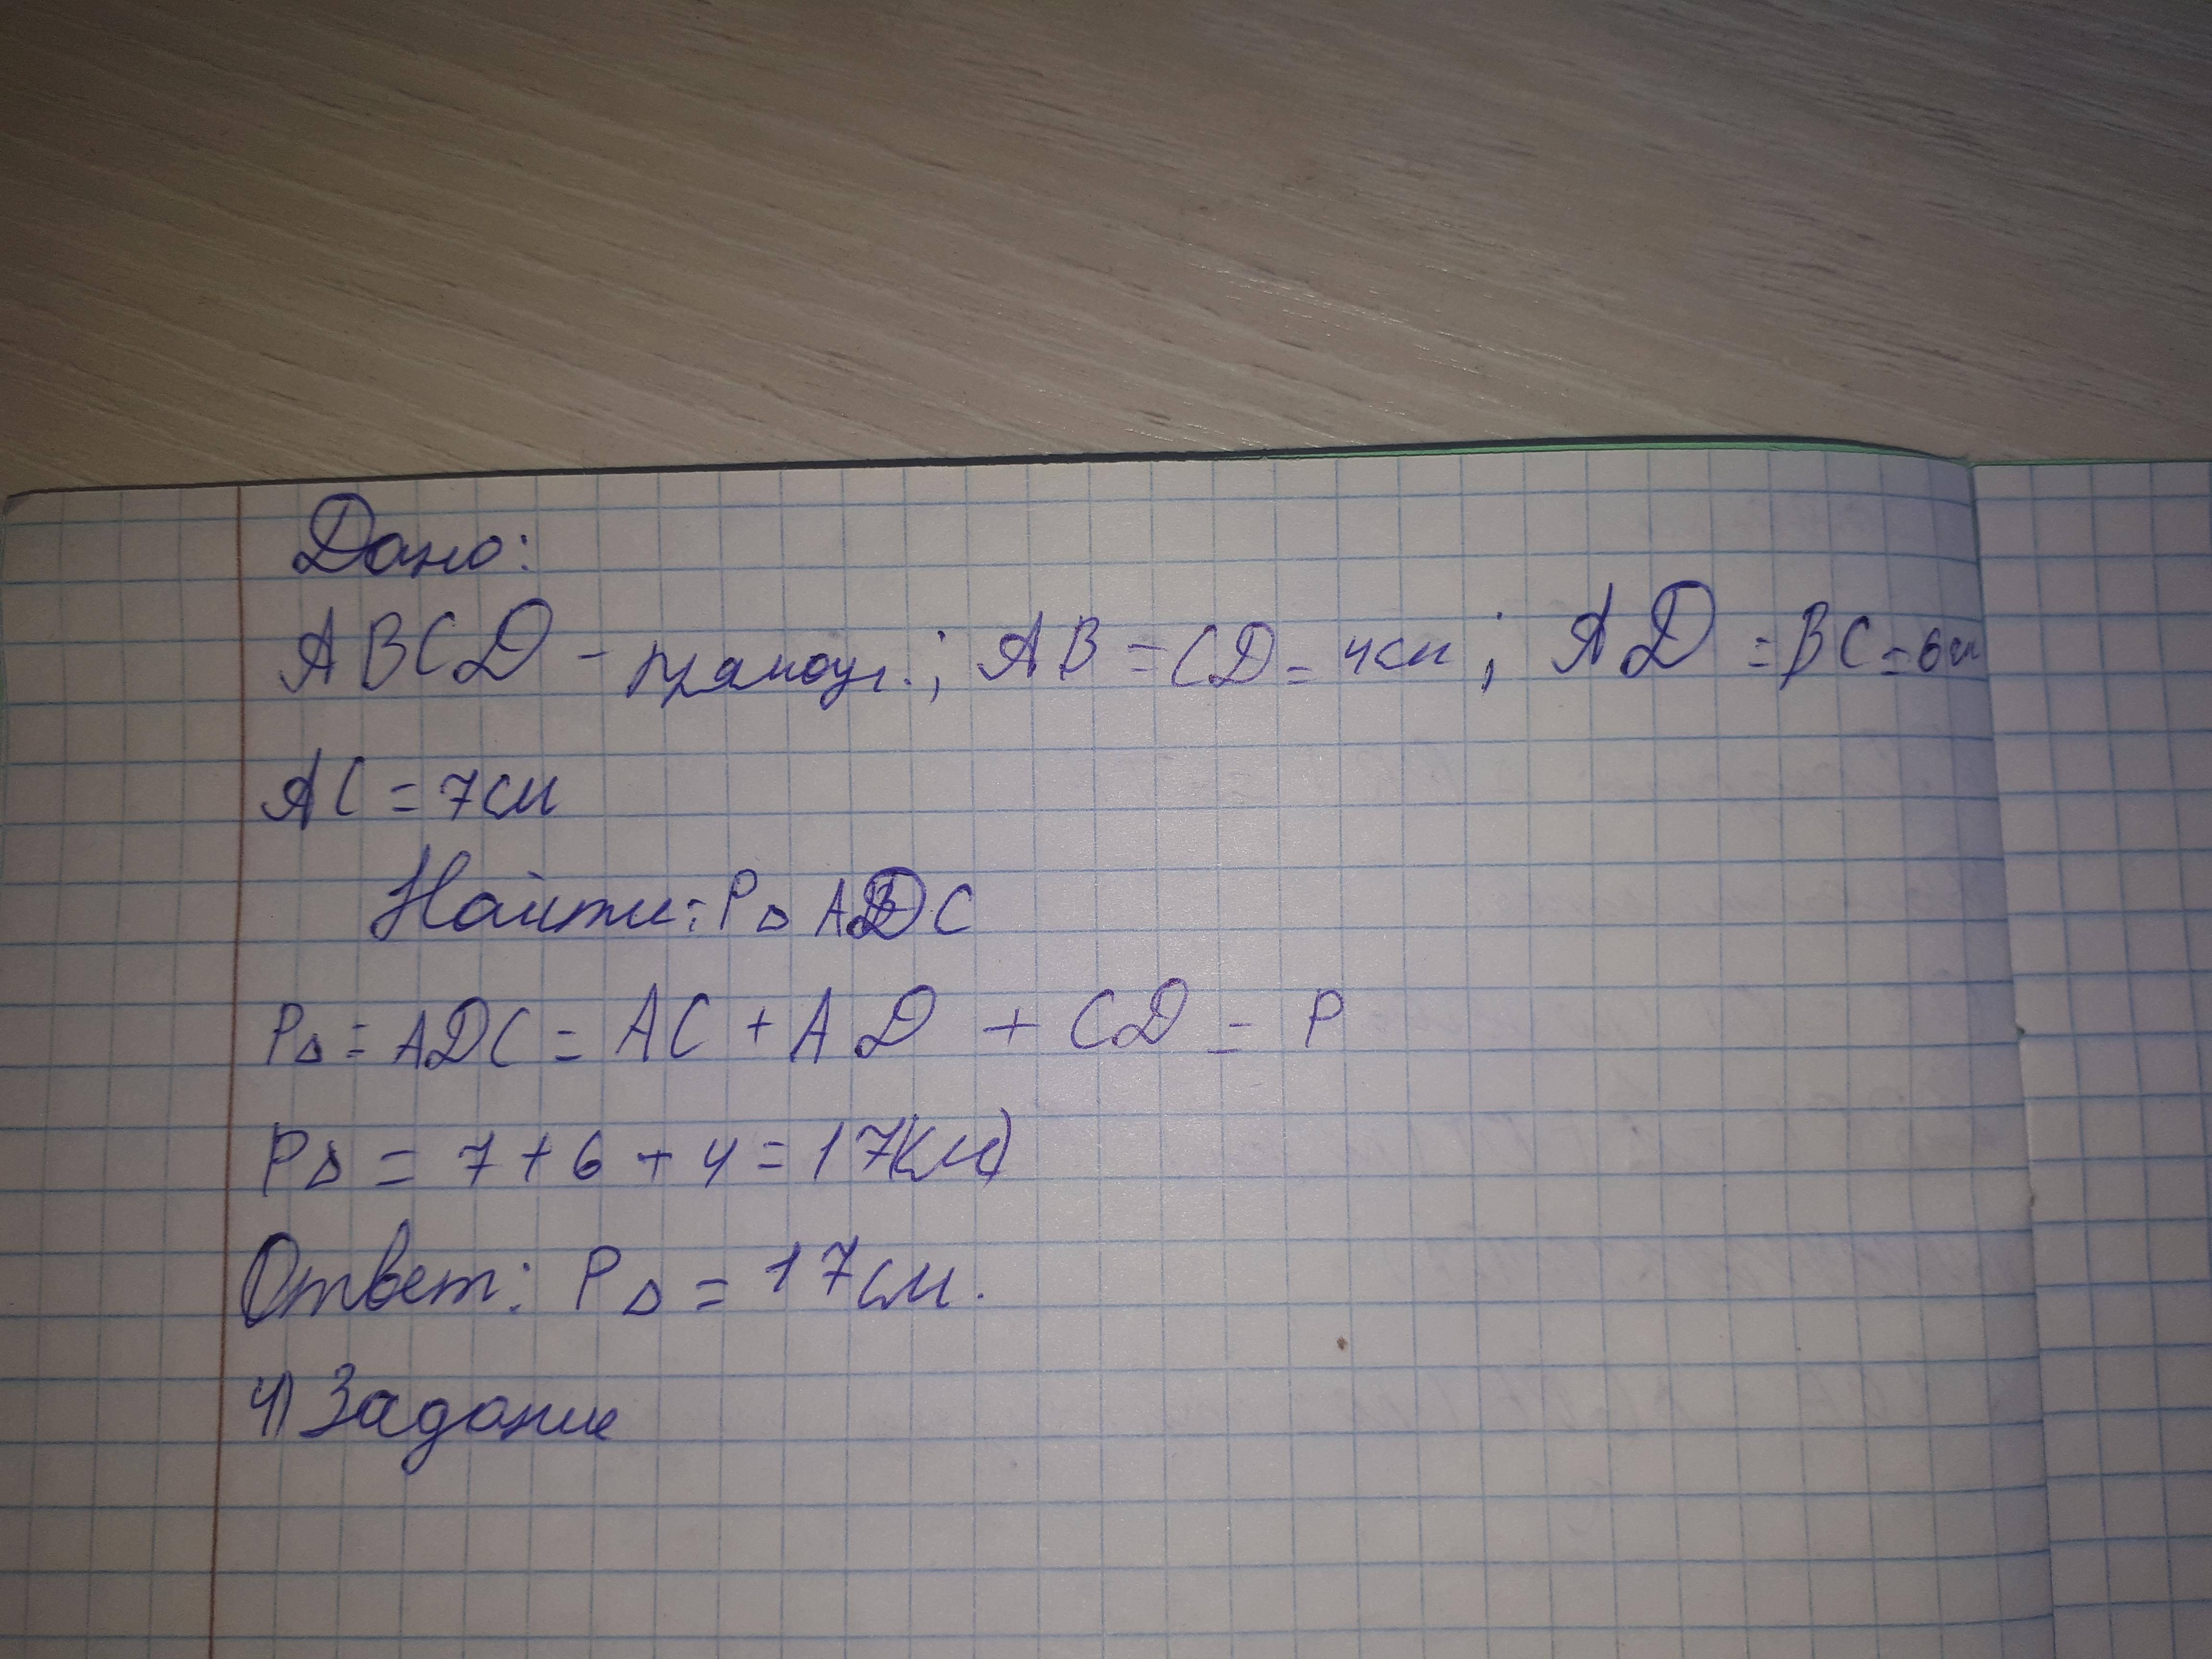 Дано:
ABCD - прямоуг.; AB = CD = 4см; AD = BC = 6см
AC = 7см
Найти: P△ ADC
P△ = ADC = AC + AD + CD = P
P△ = 7 + 6 + 4 = 17(см)
Ответ: P△ = 17см.
4) Задание